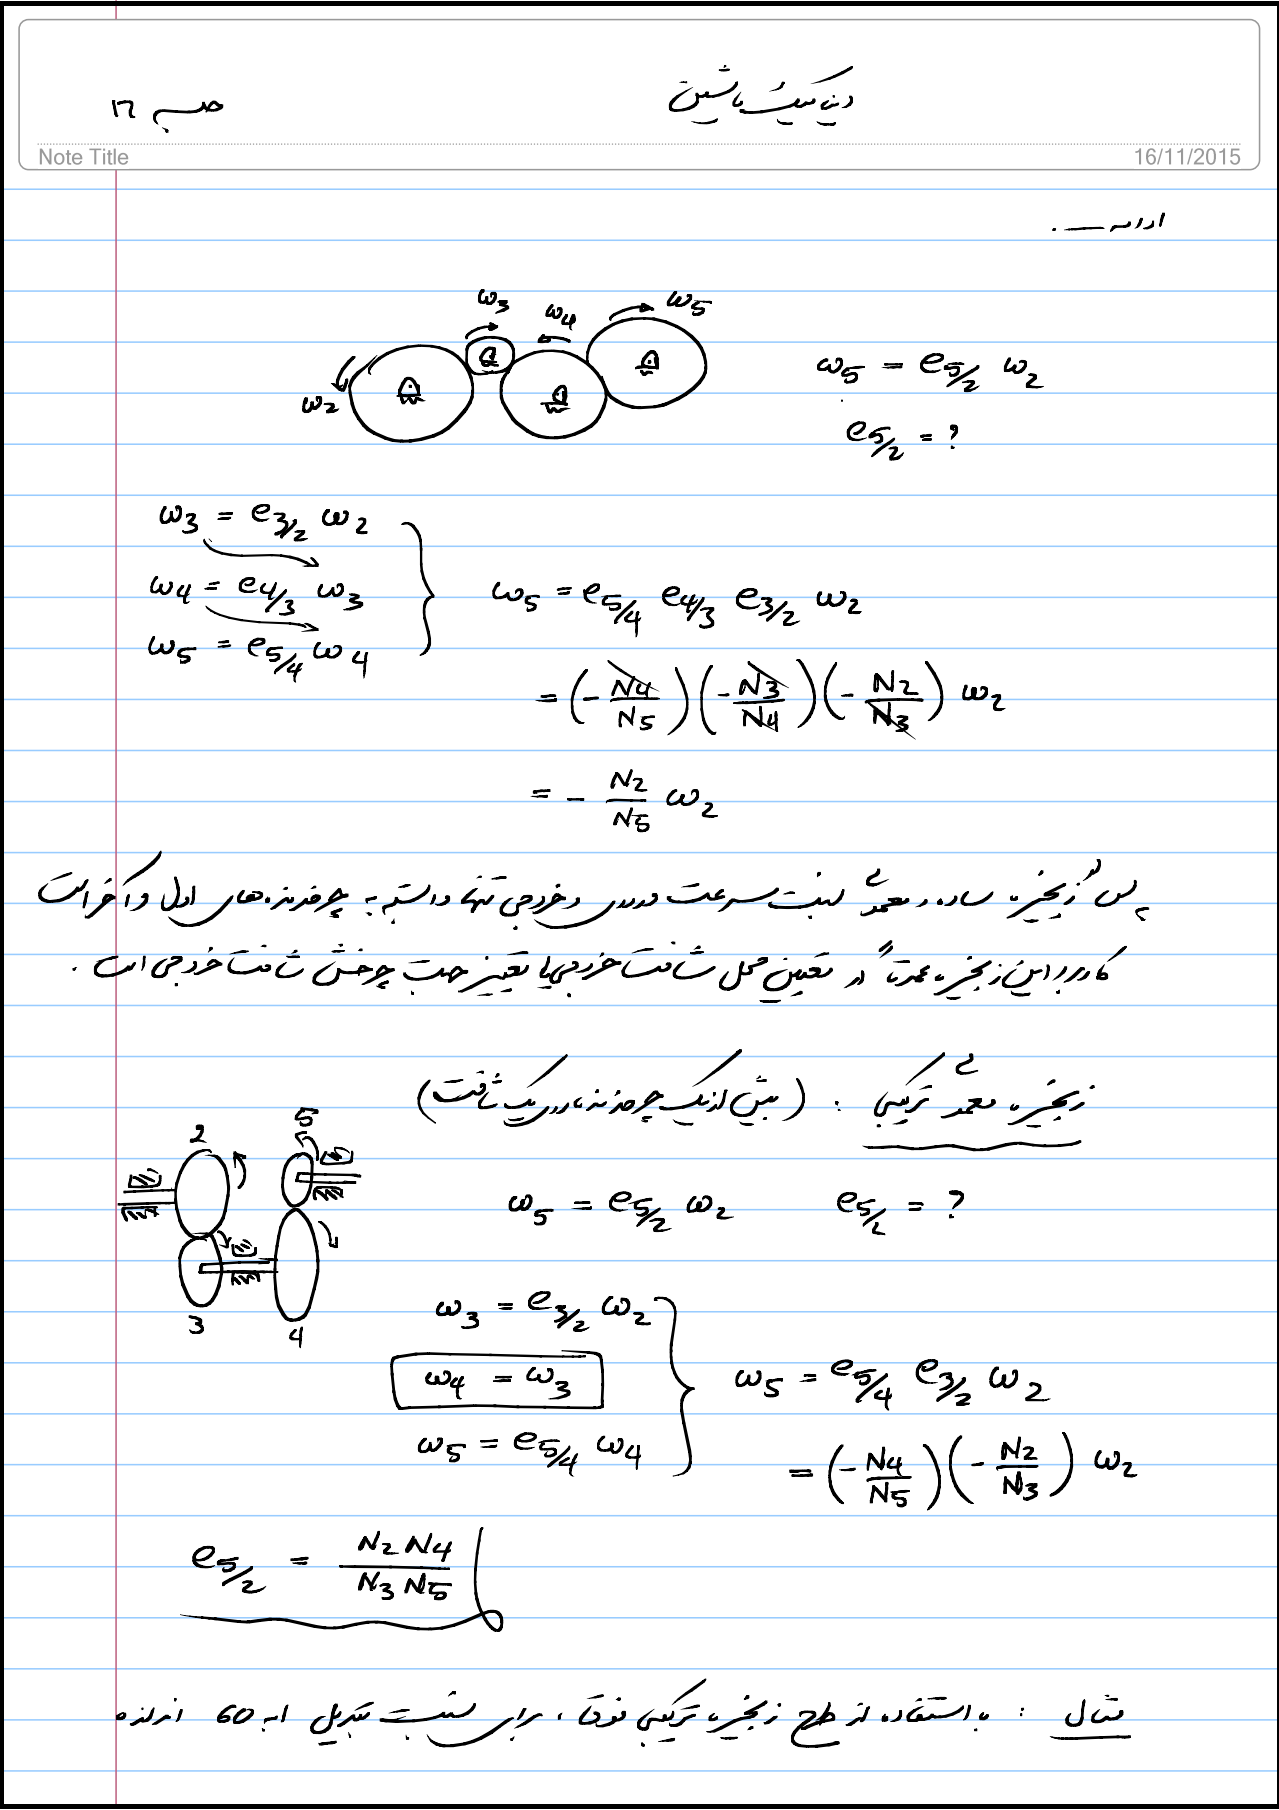 دینامیک ماشین
جلسه ۱۶
Note Title
16/11/2015
ادامه ....
ω2 ω3 ω4 ω5
ω5 = e5/2 ω2
e5/2 = ?
ω3 = e3/2 ω2
ω4 = e4/3 ω3
ω5 = e5/4 ω4
ω5 = e5/4 e4/3 e3/2 ω2
= (- N4/N5) (- N3/N4) (- N2/N3) ω2
= - N2/N5 ω2
پس در زنجیره ساده معمولی نسبت سرعت ورودی و خروجی تنها وابسته به چرخدنده‌های اول و آخر است
کاربرد این زنجیره عمدتاً در تعیین محل شافت خروجی یا تغییر جهت چرخش شافت خروجی است .
زنجیره معمولی ترکیبی : (بیش از یک چرخدنده در یک شافت)
2 5
3 4
ω5 = e5/2 ω2 e5/2 = ?
ω3 = e3/2 ω2
ω4 = ω3
ω5 = e5/4 ω4
ω5 = e5/4 e3/2 ω2
= (- N4/N5) (- N2/N3) ω2
e5/2 = N2 N4 / N3 N5
مثال : با استفاده از طرح زنجیره ترکیبی فوق ، برای نسبت تبدیل 1 به 60 اندازه